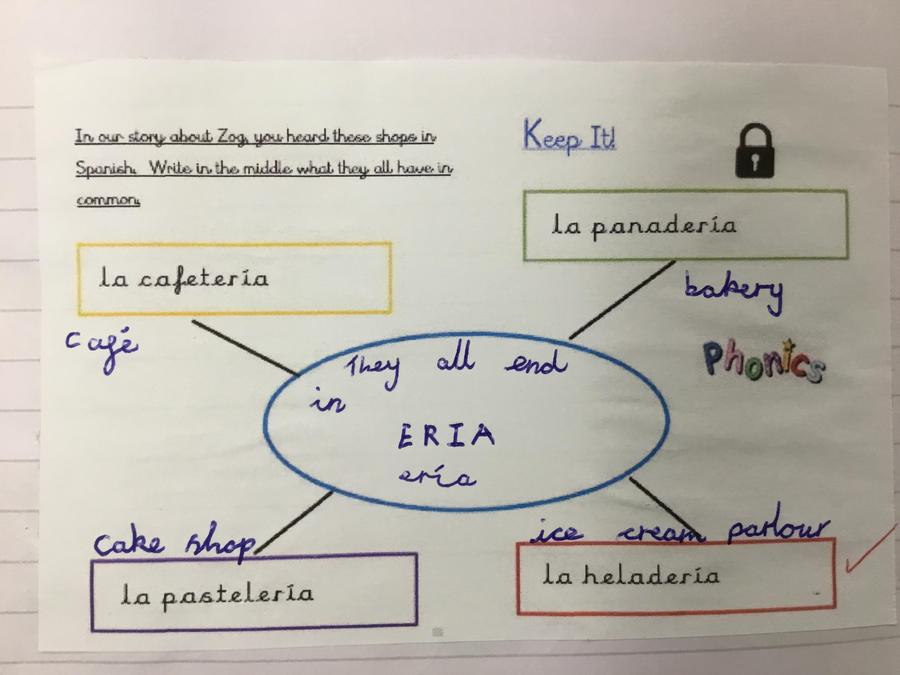 In our story about Zog, you heard these shops in
Spanish. Write in the middle what they all have in
common.
Keep It!
la panadería
bakery
la cafetería
café
Phonics
They all end
in
ERIA
ería
cake shop
la pastelería
ice cream parlour
la heladería